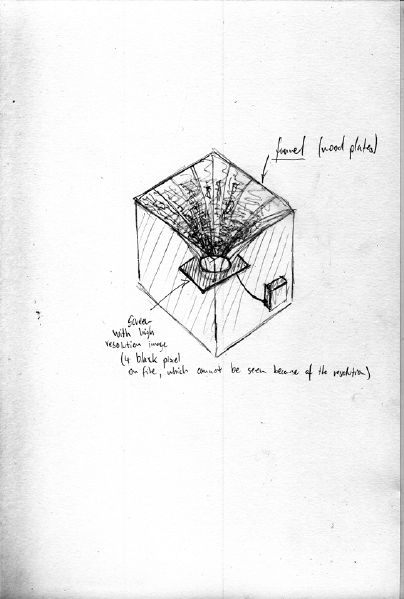 funnel (wood plates)
Screen
with high
resolution image
(4 black pixel
on file, which cannot be seen because of the resolution)